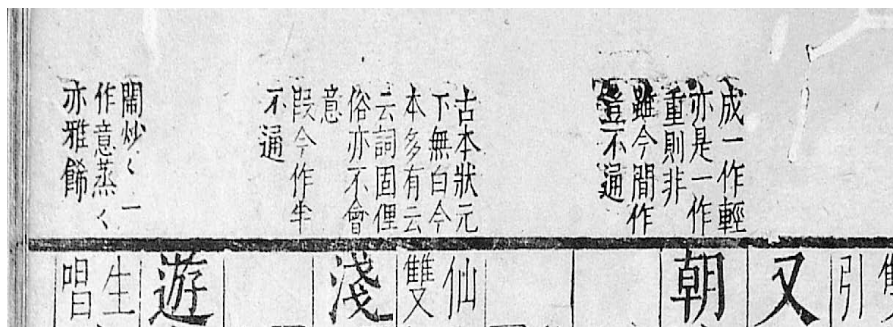 成一作輕
亦是一作
重則非
雖今間作
豈不通
古本狀元
下無白今
本多有云
云詞固俚
俗亦不會
意
段今作半
不通
鬧炒〻一
作意蒸〻
亦雅餙
引
又
朝
仙
雙
淺
遊
生
唱